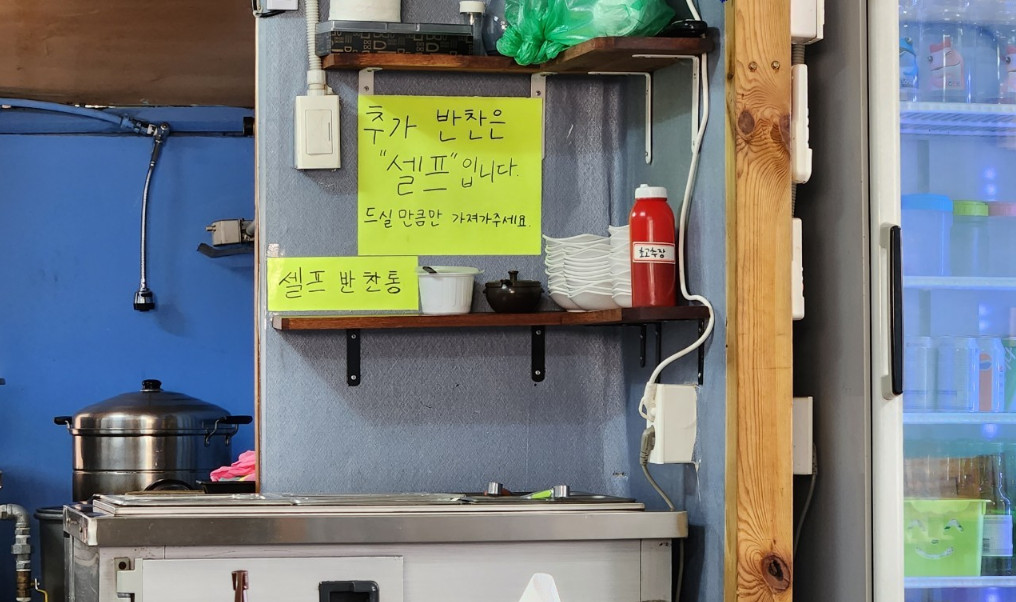 추가 반찬은
"셀프"입니다.
드실 만큼만 가져가주세요.
셀프 반찬통
초고추장